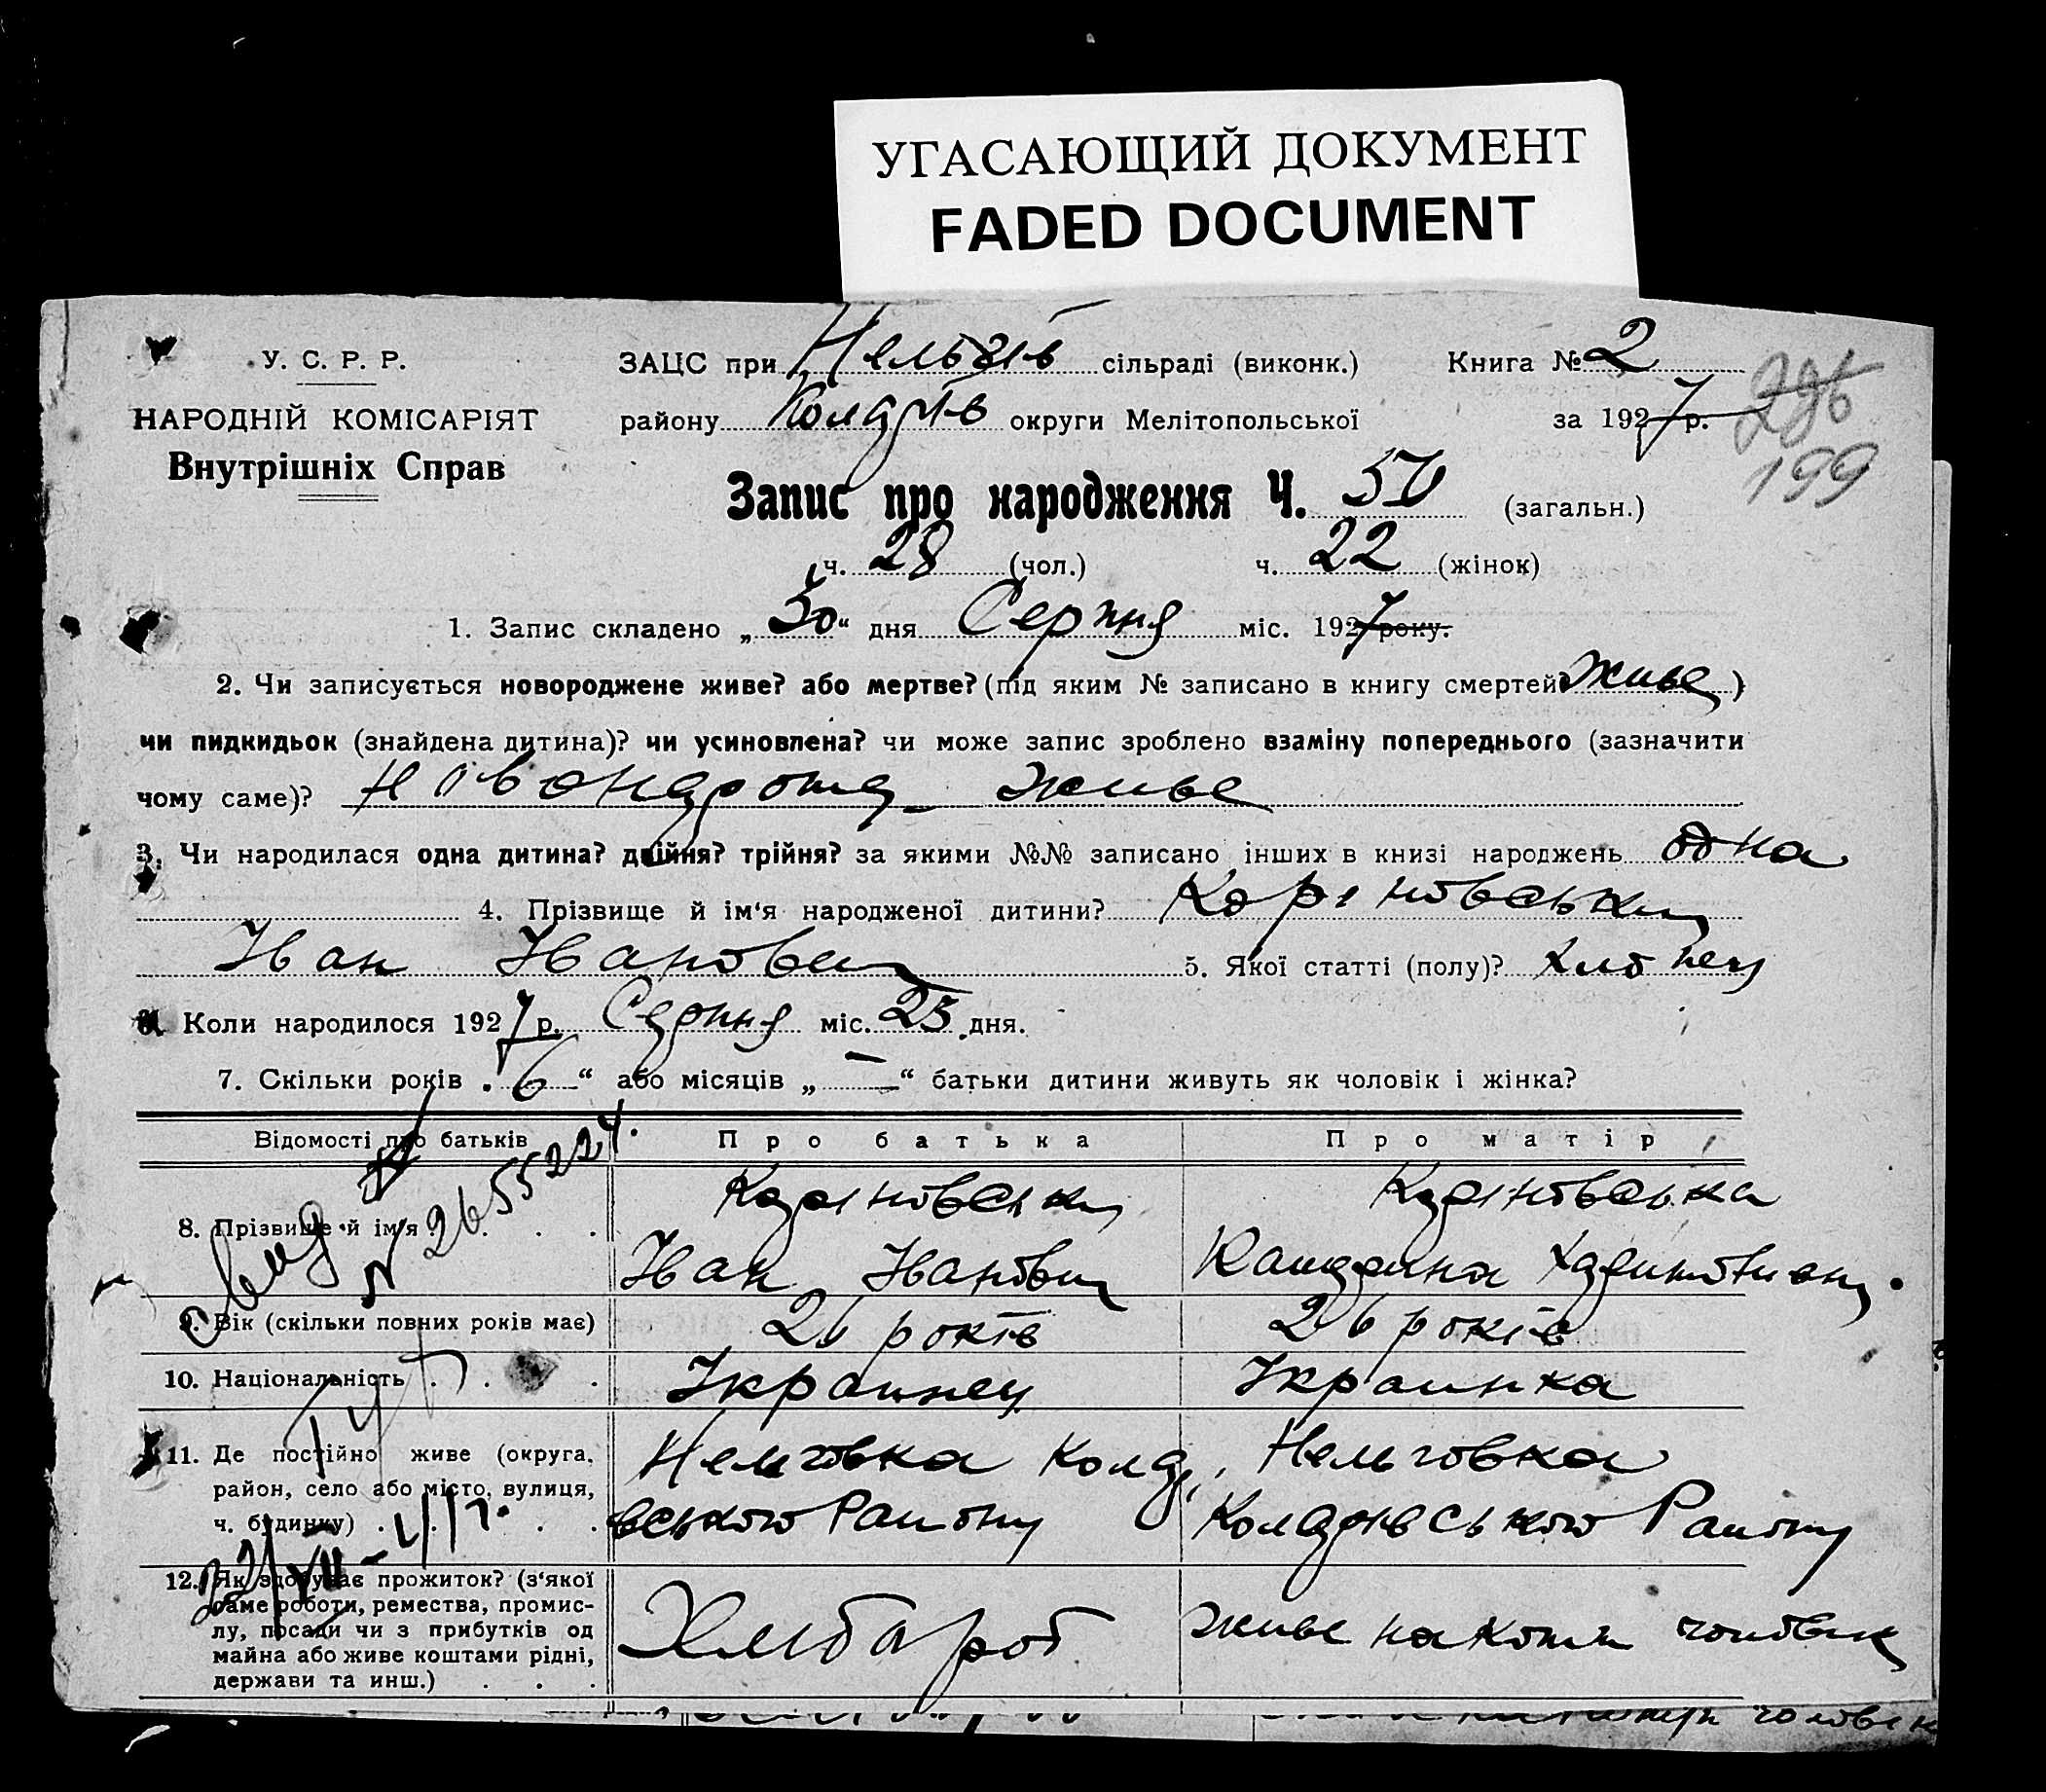 УГАСАЮЩИЙ ДОКУМЕНТ
FADED DOCUMENT
У. С. Р. Р.
НАРОДНІЙ КОМІСАРІЯТ
Внутрішніх Справ
ЗАЦС при сільраді (виконк.) Книга № 2
району округи Мелітопольської за 1927 р.
296
199
Запис про народження Ч. 50 (загальн.)
ч. 28 (чол.) ч. 22 (жінок)
1. Запис складено „30“ дня Серпня міс. 1927 року.
2. Чи записується новороджене живе? або мертве? (під яким № записано в книгу смертей? живе )
чи пидкидьок (знайдена дитина)? чи усиновлена? чи може запис зроблено взаміну попереднього (зазначити
чому саме)? живе
3. Чи народилася одна дитина? двійня? трійня? за якими №№ записано інших в книзі народжень одна
4. Прізвище й ім'я народженої дитини?
Іван Іванович 5. Якої статті (полу)? хлопец
6. Коли народилося 1927 р. Серпня міс. 25 дня.
7. Скільки років „6“ або місяців „—“ батьки дитини живуть як чоловік і жінка?
Відомості про батьків Про батька Про матір
8. Прізвище й ім'я
Іван Іванович
свид № 2655224.
9. Вік (скільки повних років має) 26 років 26 років
10. Національність Украинец Украинка
11. Де постійно живе (округа, район, село або місто, вулиця, ч. будинку)
Нельговка
вського Району Району
12. Як здобуває прожиток? (з'якої саме роботи, ремества, промислу, посади чи з прибутків од майна або живе коштами рідні, держави та инш.)
Хлібароб живе на кошти